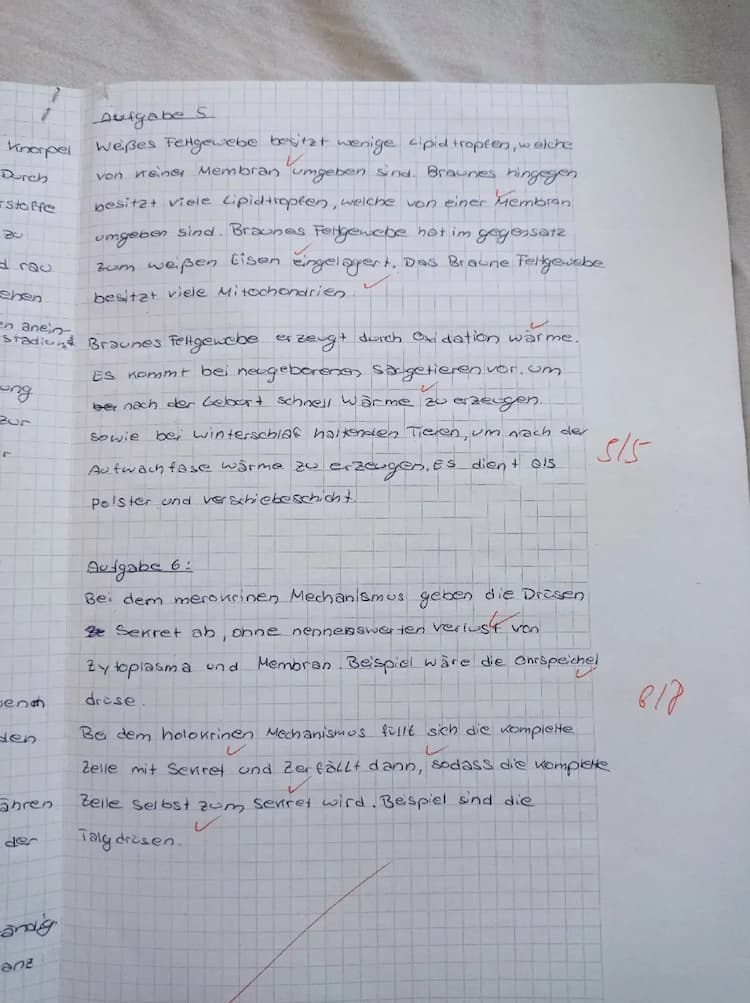 Knorpel
Durch
rstoffe
zu
d rau
ehen
en anein-
stadium
ung
zur
r
enoth
den
ähren
der
ändig
anz
Aufgabe 5
Weißes Fettgewebe besitzt wenige Lipidtropfen, welche
von keiner Membran umgeben sind. Braunes hingegen
besitzt viele Lipidtropfen, welche von einer Membran
umgeben sind. Braunes Fettgewebe hat im gegensatz
zum weißen Eisen eingelagert. Das Braune Fettgewebe
besitzt viele Mitochondrien.
Braunes Fettgewebe erzeugt durch Oxidation wärme.
Es kommt bei neugeborenen Säugetieren vor, um
nach der Geburt schnell Wärme zu erzeugen.
Sowie bei Winterschlaf haltenden Tieren, um nach der
Aufwachfase wärme zu erzeugen. Es dient als
Polster und verschiebeschicht.
5/5
Aufgabe 6:
Bei dem merokrinen Mechanismus geben die Drüsen
Sekret ab, ohne nennenswerten verlust von
Zytoplasma und Membran. Beispiel wäre die Ohrspeichel
drüse.
Bei dem holokrinen Mechanismus füllt sich die komplette
Zelle mit Sekret und Zerfällt dann, sodass die komplette
Zelle selbst zum Sekret wird. Beispiel sind die
Talgdrüsen.
6/8